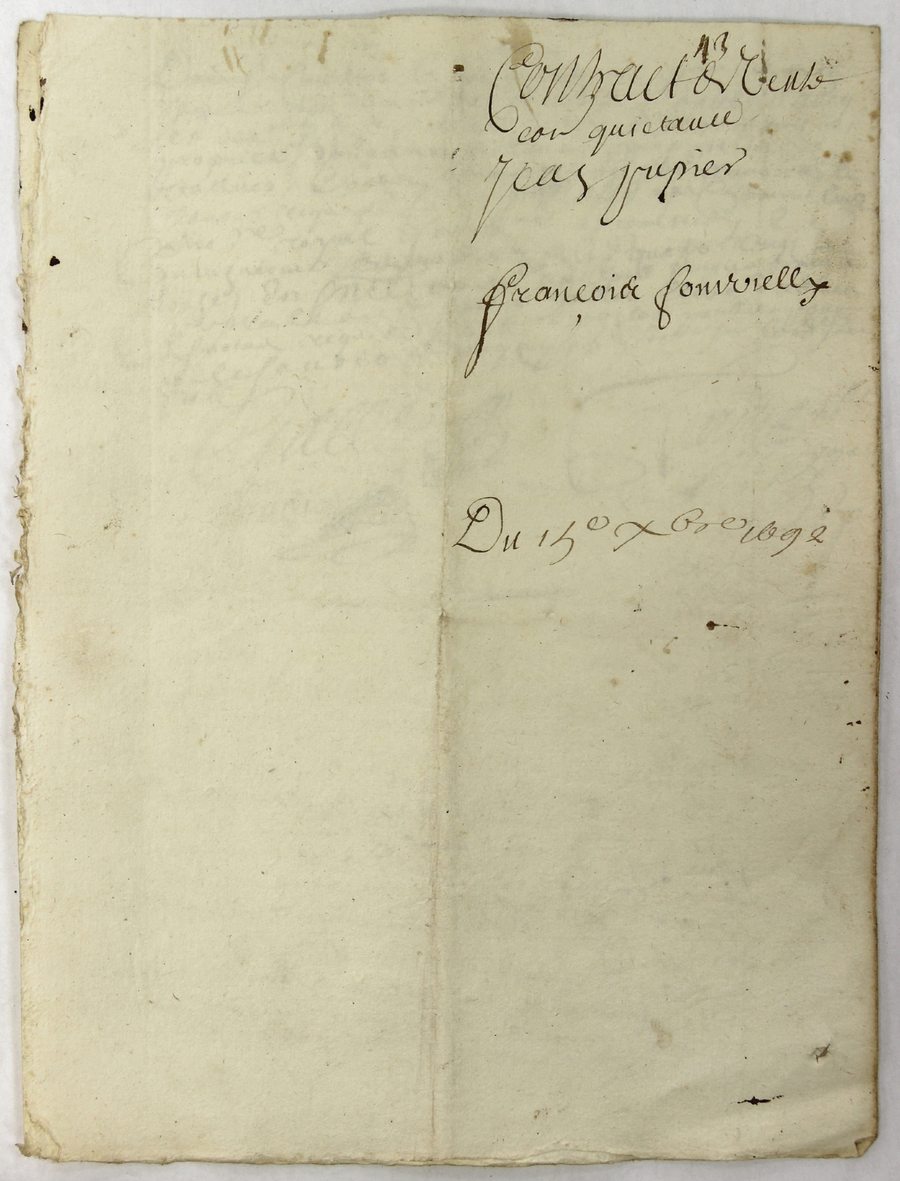 13
Contract de Vente
con quictance
Jean pupier
François fourniell
Du 15e xbre 1692